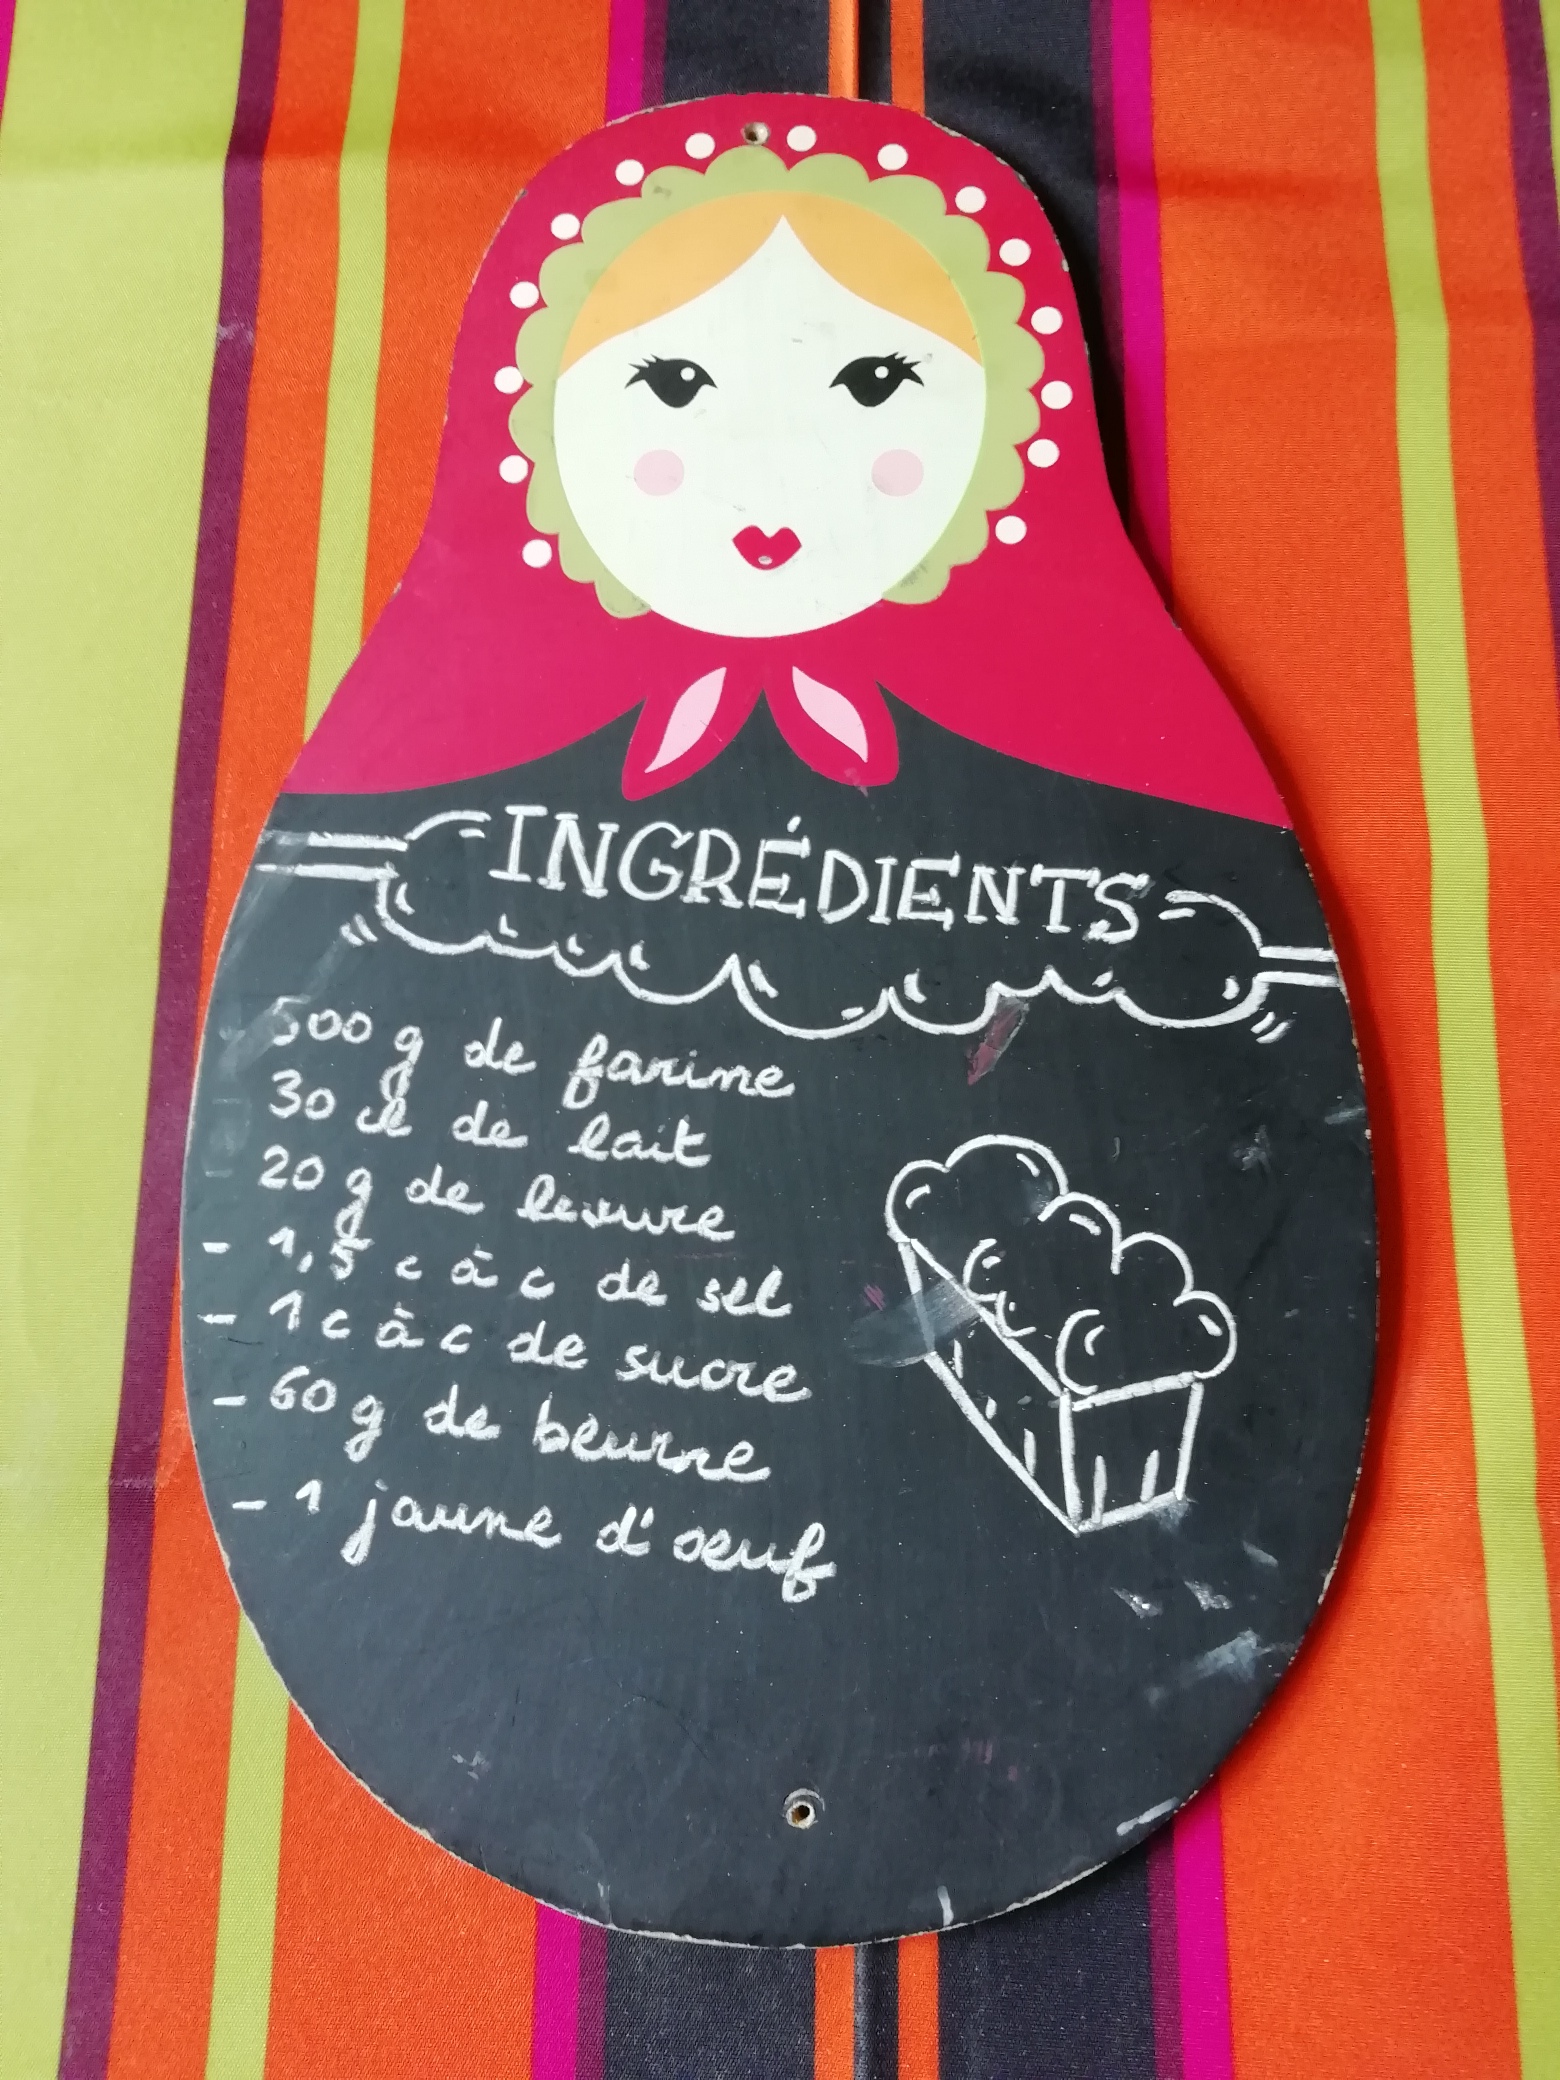 INGRÉDIENTS
500 g de farine
30 cl de lait
20 g de levure
- 1,5 c à c de sel
- 1 c à c de sucre
- 60 g de beurre
- 1 jaune d'oeuf